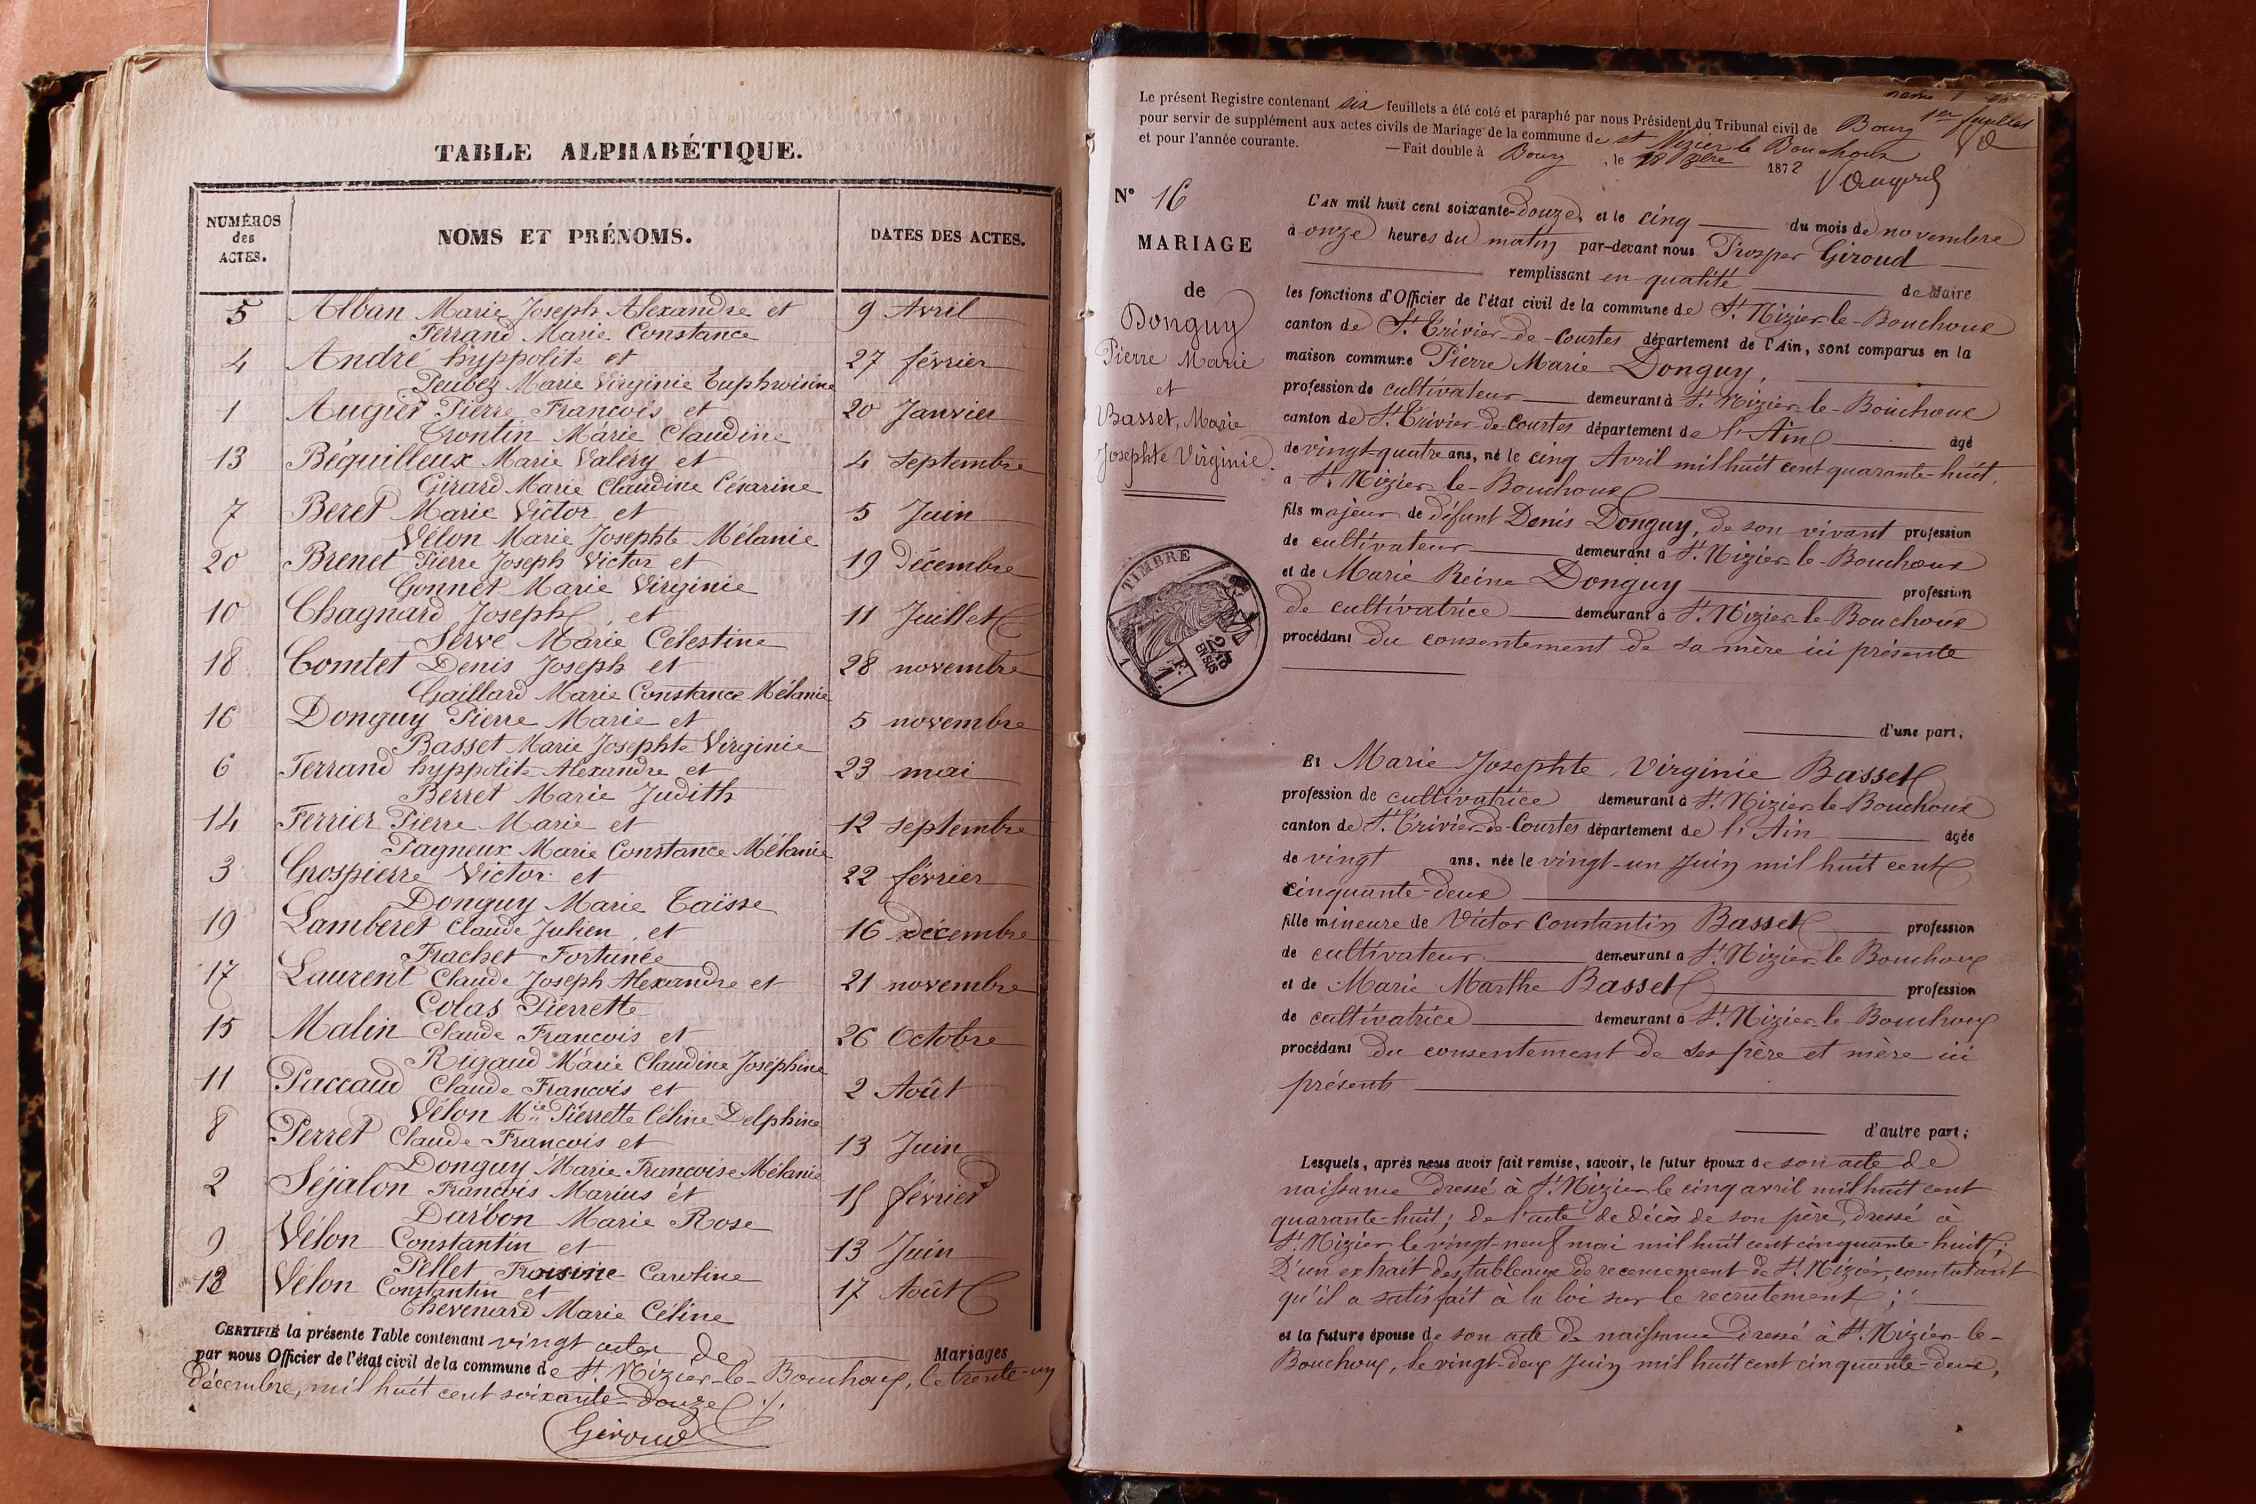 TABLE ALPHABÉTIQUE.
NUMÉROS des ACTES. NOMS ET PRÉNOMS. DATES DES ACTES.
5 Alban Marie Joseph Alexandre et 9 Avril
Ferrand Marie Constance
4 André hyppolite et 27 février
Peubez Marie Virginie Euphroisine
1 Augier Pierre François et 20 Janvier
Trontin Marie Claudine
13 Béquilleux Marie Valéry et 4 septembre
Girard Marie Claudine Césarine
7 Beret Marie Victor et 5 Juin
Vélon Marie Josephte Mélanie
20 Brenet Pierre Joseph Victor et 19 Décembre
Gonnet Marie Virginie
10 Chagnard Joseph, et 11 Juillet
Serve Marie Célestine
18 Comtet Denis Joseph et 28 novembre
Gaillard Marie Constance Mélanie
16 Donguy Pierre Marie et 5 novembre
Basset Marie Josephte Virginie
6 Ferrand hyppolite Alexandre et 23 mai
Berret Marie Judith
14 Ferrier Pierre Marie et 12 septembre
Pagneux Marie Constance Mélanie
3 Grospierre Victor et 22 février
Donguy Marie Taïsse
19 Lamberet Claude Julien, et 16 décembre
Frachet Fortunée
17 Laurent Claude Joseph Alexandre et 21 novembre
Colas Pierrette
15 Malin Claude François et 26 Octobre
Rigaud Marie Claudine Joséphine
11 Paccaud Claude François et 2 Août
Vélon Mie Pierrette Céline Delphine
8 Perret Claude François et 13 Juin
Donguy Marie Françoise Mélanie
2 Séjalon François Marius et 15 février
Darbon Marie Rose
9 Vélon Constantin et 13 Juin
Pellet Caroline
12 Vélon Constantin et 17 Août
Chevenard Marie Céline
CERTIFIÉ la présente Table contenant vingt actes de Mariages
par nous Officier de l'état civil de la commune de St. Nizier-le-Bouchoux, le trente-un
décembre, mil huit cent soixante-douze ./.
Giroud
Le présent Registre contenant six feuillets a été coté et paraphé par nous Président du Tribunal civil de Bourg
1er feuillet
pour servir de supplément aux actes civils de Mariage de la commune de St Nizier le Bouchoux
et pour l'année courante. —Fait double à Bourg, le 18 1872
N° 16
MARIAGE
de
Donguy
Pierre Marie
et
Basset, Marie
Josephte Virginie.
TIMBRE
2/10 EN SUS
1 F.
L'AN mil huit cent soixante-douze, et le cinq du mois de novembre
à onze heures du matin par-devant nous Prosper Giroud
remplissant en qualité de Maire
les fonctions d'Officier de l'état civil de la commune de St. Nizier-le-Bouchoux
canton de St. Trivier-de-Courtes département de l'Ain, sont comparus en la
maison commune Pierre Marie Donguy,
profession de cultivateur demeurant à St. Nizier-le-Bouchoux
canton de St. Trivier-de-Courtes département de l'Ain âgé
de vingt-quatre ans, né le cinq Avril mil huit cent quarante-huit,
à St. Nizier-le-Bouchoux
fils majeur de défunt Denis Donguy, de son vivant profession
de cultivateur demeurant à St. Nizier-le-Bouchoux
et de Marie Reine Donguy profession
de cultivatrice demeurant à St. Nizier-le-Bouchoux
procédant du consentement de sa mère ici présente
d'une part,
Et Marie Josephte Virginie Basset
profession de cultivatrice demeurant à St. Nizier-le-Bouchoux
canton de St. Trivier-de-Courtes département de l'Ain âgée
de vingt ans, née le vingt-un Juin mil huit cent
cinquante-deux
fille mineure de Victor Constantin Basset profession
de cultivateur demeurant à St. Nizier-le-Bouchoux
et de Marie Marthe Basset profession
de cultivatrice demeurant à St. Nizier-le-Bouchoux
procédant du consentement de ses père et mère ici
présents
d'autre part;
Lesquels, après nous avoir fait remise, savoir, le futur époux de son acte de
naissance dressé à St. Nizier le cinq avril mil huit cent
quarante-huit; de l'acte de décès de son père, dressé à
St. Nizier le vingt-neuf mai mil huit cent cinquante-huit;
D'un extrait des tableaux de recensement de St. Nizier, constatant
qu'il a satisfait à la loi sur le recrutement;
et la future épouse de son acte de naissance dressé à St. Nizier-le-
Bouchoux, le vingt-deux Juin mil huit cent cinquante-deux,